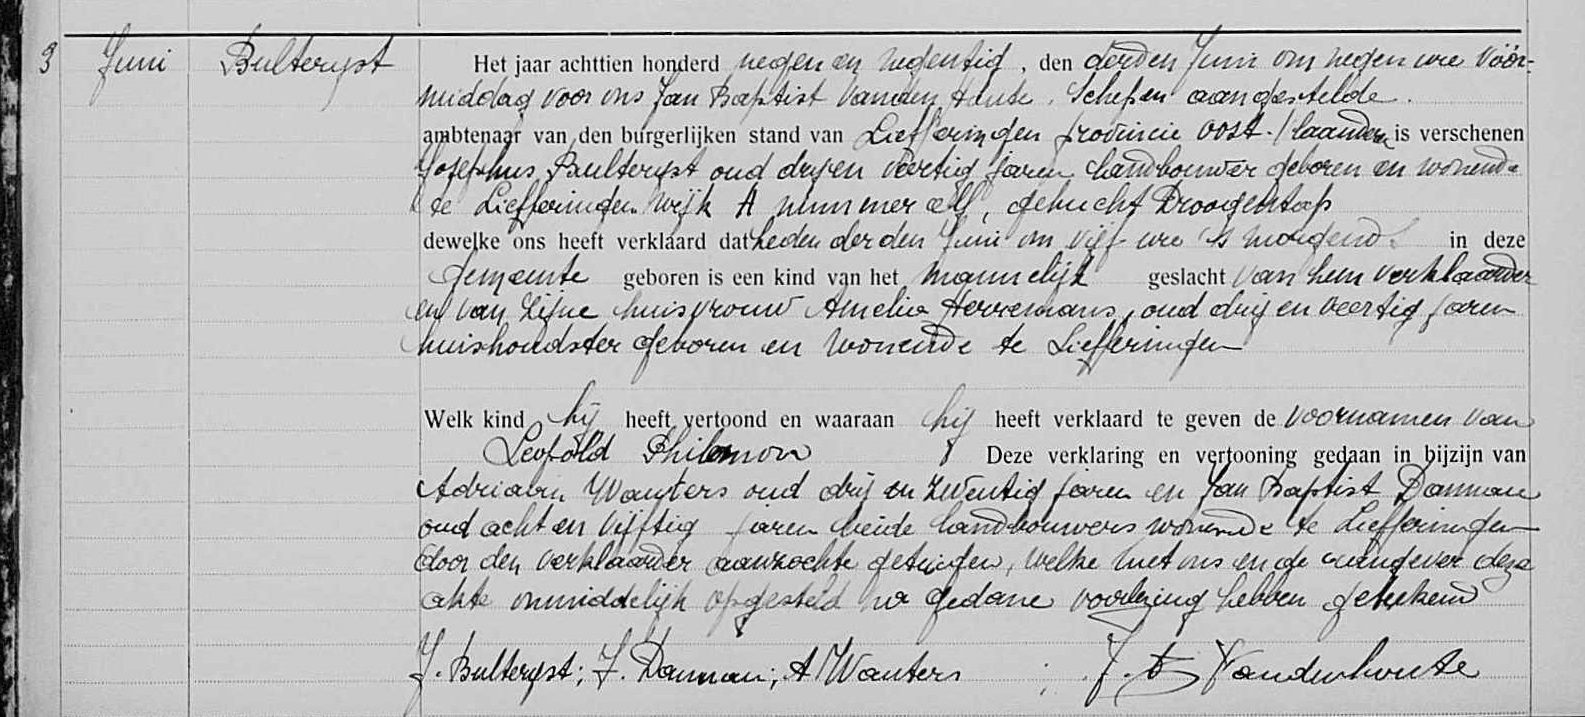 3 Juni Bulteryst Het jaar achttien honderd negen en negentig, den derden Juni om negen ure vóór-
middag voor ons Jan Baptist Vanden Houte, Schepen aangestelde.
ambtenaar van den burgerlijken stand van Liefferingen provincie Oost-Vlaanderen is verschenen
Josephus Bulteryst oud dryen veertig jaren landbouwer geboren en wonende
te Liefferingen Wijk A nummer elf, gehucht Droogentap
dewelke ons heeft verklaard dat heden derden Juni om vijf ure 's morgends in deze
gemeente geboren is een kind van het mannelijk geslacht van hem verklaarder
en van zijne huisvrouw Amelia Herremans, oud drij en veertig jaren
huishoudster geboren en wonende te Liefferingen
Welk kind hij heeft vertoond en waaraan hij heeft verklaard te geven de voornamen van
Leopold Philemon Deze verklaring en vertooning gedaan in bijzijn van
Adriaan Wauters oud drij en zwentig jaren en Jan Baptist Damman
oud acht en vijftig jaren beide landbouwers wonende te Liefferingen
door den verklaarder aanzochte getuigen, welke met ons en de aangever deze
akte onmiddelijk opgesteld na gedane voorlezing hebben getekend
J. Bulteryst; J. Damman; A Wauters ; J. B Vandenhoute